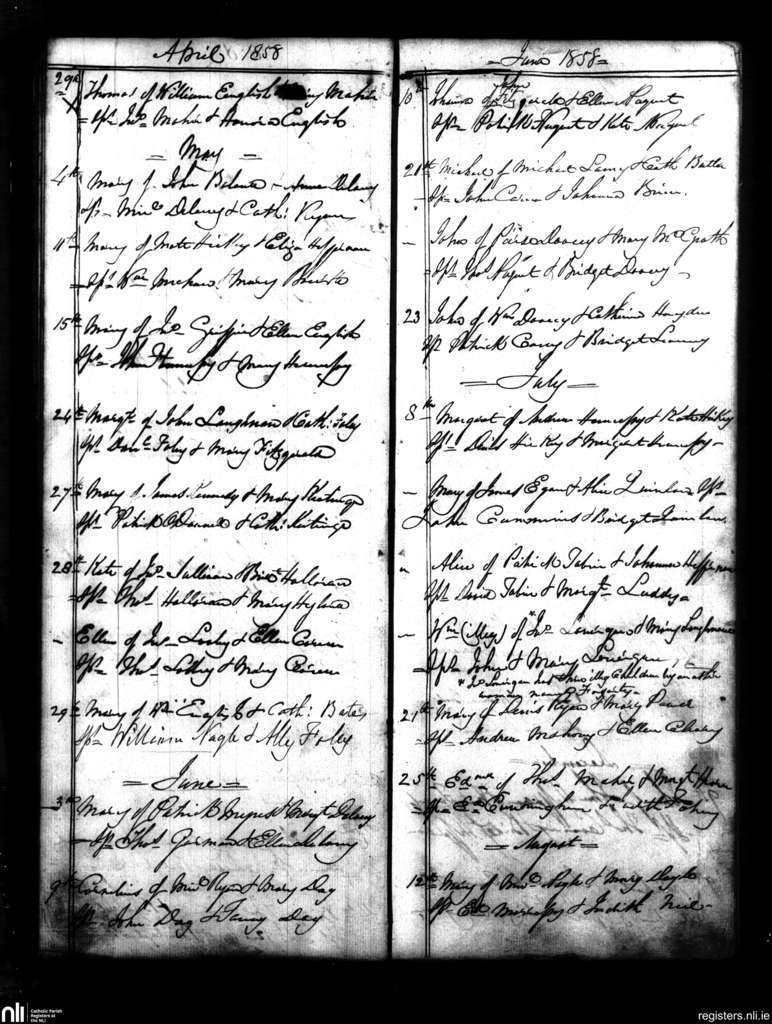 April 1858
29th Thomas of William English & Mary Maher
Sprs Jno Maher & Honora English
May
4th Mary of John Delaney Anne Delaney
Sprs Michl Delaney & Cath: Ryan
11th Mary of Matt Hickey & Eliza Heffernan
Sprs Wm Meehan & Mary
15th Mary of Jno Griffin & Ellen English
Sprs John Hennessy & Mary Hennessy
24th Margt of John Loughnan & Cath: Foley
Sprs Danl Foley & Mary Fitzgerald
27th Mary of James Kennedy & Mary Keatinge
Sprs Patrick O'Donnell & Cath: Keatinge
28th Kate of Jno Sullivan & Bridt Halloran
Sprs Thos Halloran & Mary Hyland
Ellen of Jno Looby & Ellen
Sprs Thos Looby & Mary
29 Mary of Wm English & Cath: Bates
Sprs William Nagle & Ally Foley
June
3rd Mary of Patrick & Margt Delany
Sprs Thos Gorman & Ellen Delany
9th Cornelius of Michl Ryan & Mary Day
Sprs John Day & Fanny Day
June 1858
John
10th of & Ellen Nugent
Sprs Patrick Nugent & Kate Nugent
21st Michael of Michael Leamy & Cath Butler
Sprs John & Johanna Brien
John of Pierse Doocey & Mary McGrath
Sprs Thos Nugent & Bridget Doocey
23 John of Wm Doocey & Catherine Hayden
Sprs Patrick Casey & Bridget Leamy
July
8th Margaret of Andrew Hennessy & Kate Hickey
Sprs Denis Hickey & Margaret Hennessy
Mary of James Egan & Alice Quinlan Sprs
John Cummins & Bridget Quinlan
Alice of Patrick Tobin & Johanna Heffernan
Sprs David Tobin & Margt Luddy
Wm (Illeg) of "Jno Lonergan & Mary Loughnan
Sprs John & Mary Lonergan
"Jno Lonergan has three illeg children by another
woman named
21st Mary of Denis Ryan & Mary Power
Sprs Andrew Mahony & Ellen
25th Edmd of Thos Maher & Margt
Sprs Ed Cunningham & Judith Fahey
August
12th Mary of Michl Nagle & Mary Doyle
Sprs Ed & Judith Neil
nli
Catholic Parish
Registers at
the NLI
registers.nli.ie